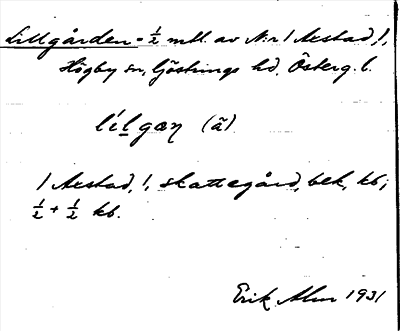 Lillgården = ½ mtl. av N:r 1 Axstad, 1,
Högby sn, Göstrings hd, Österg. l.
lílgan (ã)
1 Axstad, 1, skattegård, bek, kb;
½ + ½ kb.
Erik Alm 1931